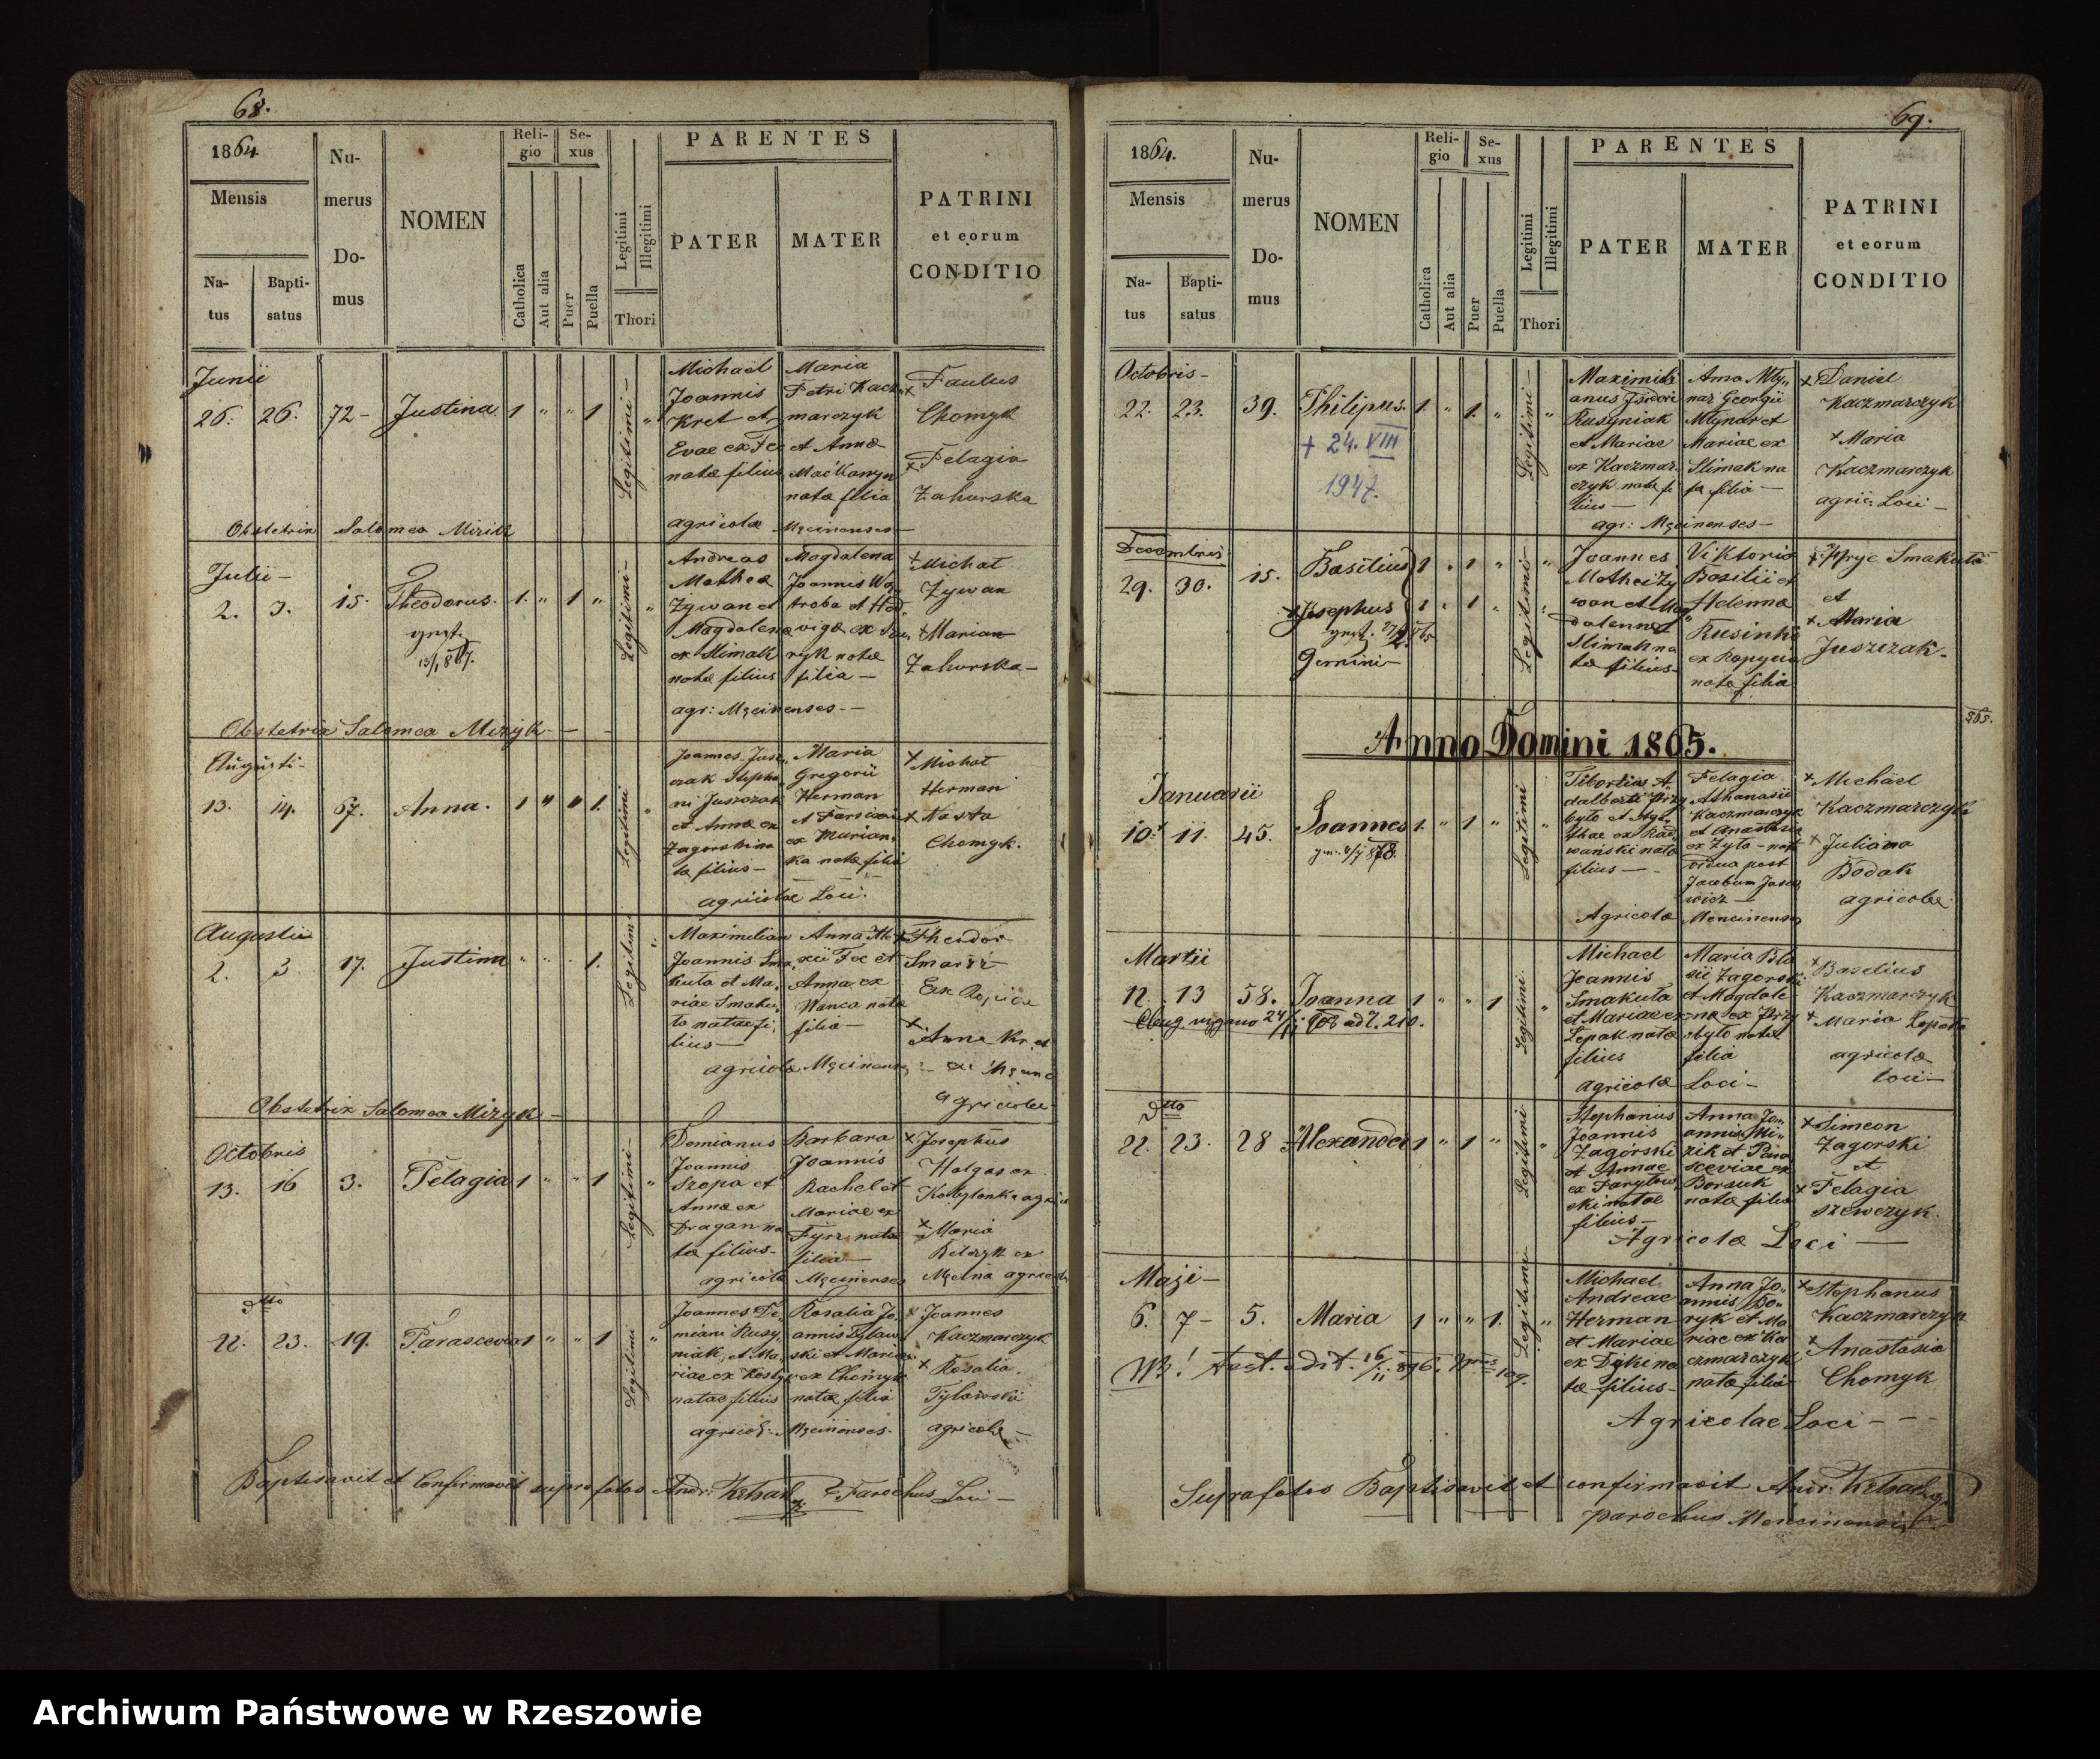 68.
1864
Mensis
Na-
tus
Bapti-
satus
Nu-
merus
Do-
mus
NOMEN
Reli-
gio
Catholica
Aut alia
Se-
xus
Puer
Puella
Legitimi
Illegitimi
Thori
PARENTES
PATER
MATER
PATRINI
et eorum
CONDITIO
Junii
26. 26. 72 - Justina 1 " " 1
Legitimi -
Michael
Joannis
Kret et
Evae ex Fec
natae filius
Maria
Petri Kacz
marczyk
et Annae
natae filia
agricolae Męcinenses -
Paulus
Chomyk
Pelagia
Zahurska
Obstetrix Salomea Mizik
Julii -
2. 3. 15. Theodorus. 1. " 1 "
Legitimi -
Andreas
Mathea
Żywan et
Magdalena
ex Slimak
natae filius
Magdalena
Joannis Wa
troba et Hed
viga ex
ryk natae
filia -
agr: Męcinenses. -
+ Michał
Żywan
+ Marian
Zahurska -
Obstetrix Salomea Mizyk -
Augusti -
13. 14. 67. Anna. 1 " " 1.
Legitimi
Joannes Jusz
czak Stepha
ni Juszczak
et Annae ex
Zagorski na
ta filius -
Maria
Gregorii
Herman
et Parscevi
ex Murian
ka natae filia
agricolae Loci.
+ Michał
Herman
+ Nasta
Chomyk.
Augustii
2. 3 17. Justina " " . 1.
Legitimi
Maximilian
Joannis Sma
kuta et Ma,
riae Smaku,
ta natae fi,
lius -
Anna Ale
xii Fec et
Anna ex
Wanca nata
filia -
agricolae Męcinenses
+ Theodor
Smarż
Ex Ropica
+ Anna
agricolae
Obstetrix Salomea Mizyk -
Octobris
13. 16 3. Pelagia 1 " " 1
Legitimi -
Demianus
Joannis
Szopa et
Annae ex
Dragan na
ta filius -
Barbara
Joannis
Rachel et
Mariae ex
Fyrz nata
filia -
agricolae Męcinenses
+ Josephus
Halgas ex
Kobylanka agric
+ Maria
ex
Męcina agricolae
dtto
22. 23. 19. Parascevia 1 " " 1
Legitimi
Joannes De,
miani Rusy,
niak, et Ma,
riae ex Kosty
natae filius
Rosalia Jo,
annis Tylaw
ski et Maria
ex Chomyk
natae filia
agricol: Męcinenses.
+ Joannes
Kaczmarczyk
+ Rosalia
Tylawski
agricolae -
Baptisavit et Confirmavit suprafatos Andr: Parochus Loci -
69.
1864.
Mensis
Na-
tus
Bapti-
satus
Nu-
merus
Do-
mus
NOMEN
Reli-
gio
Catholica
Aut alia
Se-
xus
Puer
Puella
Legitimi
Illegitimi
Thori
PARENTES
PATER
MATER
PATRINI
et eorum
CONDITIO
Octobris -
22. 23. 39. Philipus. 1. " 1. "
+ 24. VIII
1947.
Legitimi -
Maximili
anus Isidori
Rusyniak
et Mariae
ex Kaczmar
czyk natae fi
lius -
Anna Mły,,
nar Georgii
Młynar et
Mariae ex
Slimak na
ta filia -
agr: Męcinenses -
+ Daniel
Kaczmarczyk
+ Maria
Kaczmarczyk
agric: Loci -
Decembris
29. 30. 15. Basilius 1 " 1 "
+ Josephus 1 " 1 "
Gemini -
Legitimi -
Joannes
Mathei Ży
wan et Mag
dalennae
Slimak na
ta filius -
Viktoria
Basilii et
Helenna
Rusinki
ex Kopycia
nata filia
+ Hryc Smakuta
et
+ Maria
Juszczak -
865.
Anno Domini 1865.
Januarii
10. 11. 45. Joannes 1. " 1 "
Legitimi
Tiburtius A
dalberti Przy
było et Aga
thae ex Rad
wański nata
filius -
Pelagia
Athanasii
Kaczmarczyk
et Anastasia
ex Żyła - nata
vidua post
Jacobum Jase
wicz -
Agricolae Mencinenses
+ Michael
Kaczmarczyk
+ Juliana
Bodak
agricolae
Martii
12. 13 58. Joanna 1 " " 1
24/ 908 ad l. 210.
Legitimi
Michael
Joannis
Smakuta
et Mariae ex
Lepak natae
filius
Maria Bla
sii Zagorski
et Magdale
nae ex Przy
było natae
filia
agricolae Loci -
+ Basilius
Kaczmarczyk
+ Maria Łopata
agricolae
loci -
dtto
22. 23. 28 Alexander 1 " 1 "
Legitimi
Stephanus
Joannis
Zagorski
et Annae
ex Parylow,
ski natae
filius -
Anna Jo,
annis Mi,,
zik et Para
sceviae ex
Borsuk
natae filia
Agricolae Loci -
+ Simeon
Zagorski
et
+ Pelagia
Szewczyk.
Maji -
6. 7 - 5. Maria 1 " " 1.
NB! Test. edit. 16/ii 896. Nprus 109.
Legitimi
Michael
Andreae
Herman
et Mariae
ex Dziki na
ta filius -
Anna Jo,,
annis Bo,,
ryk et Ma
riae ex Ka
czmarczyk
nata filia
Agricolae Loci - - -
+ Stephanus
Kaczmarczyk
+ Anastasia
Chomyk
Suprafatos Baptisavit et confirmavit Andr:
parochus Mencinensis
Archiwum Państwowe w Rzeszowie